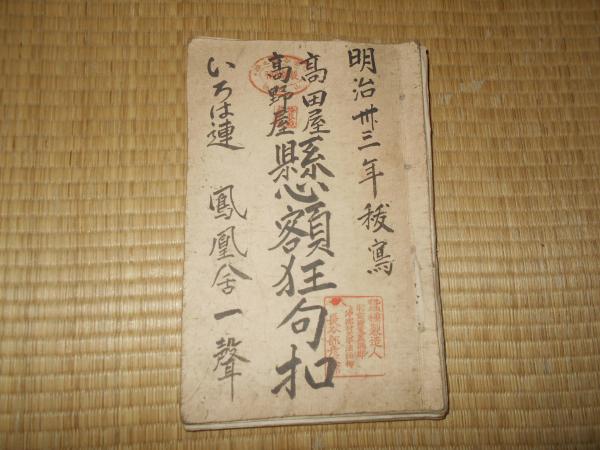 明治卅三年秡寫
高田屋
高野屋
懸額狂句扣
いろは連 鳳凰舎一聲
製造人